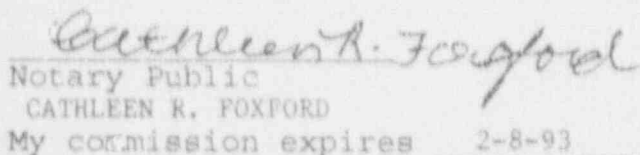 Cathleen R. Foxford
Notary Public
CATHLEEN R. FOXFORD
My commission expires 2-8-93